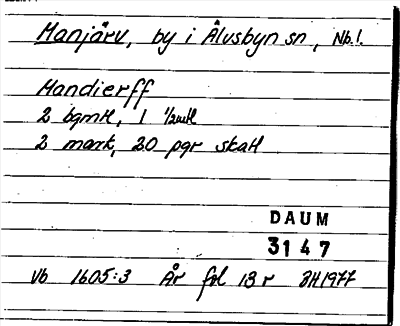 Manjärv, by i Älvsbyn sn, Nb.l.
Mandierff
2 bgmtl, 1 1/2mtl
2 mark, 20 pgr skatt
DAUM
3147
Vb 1605:3 År fol 13 r JH1977